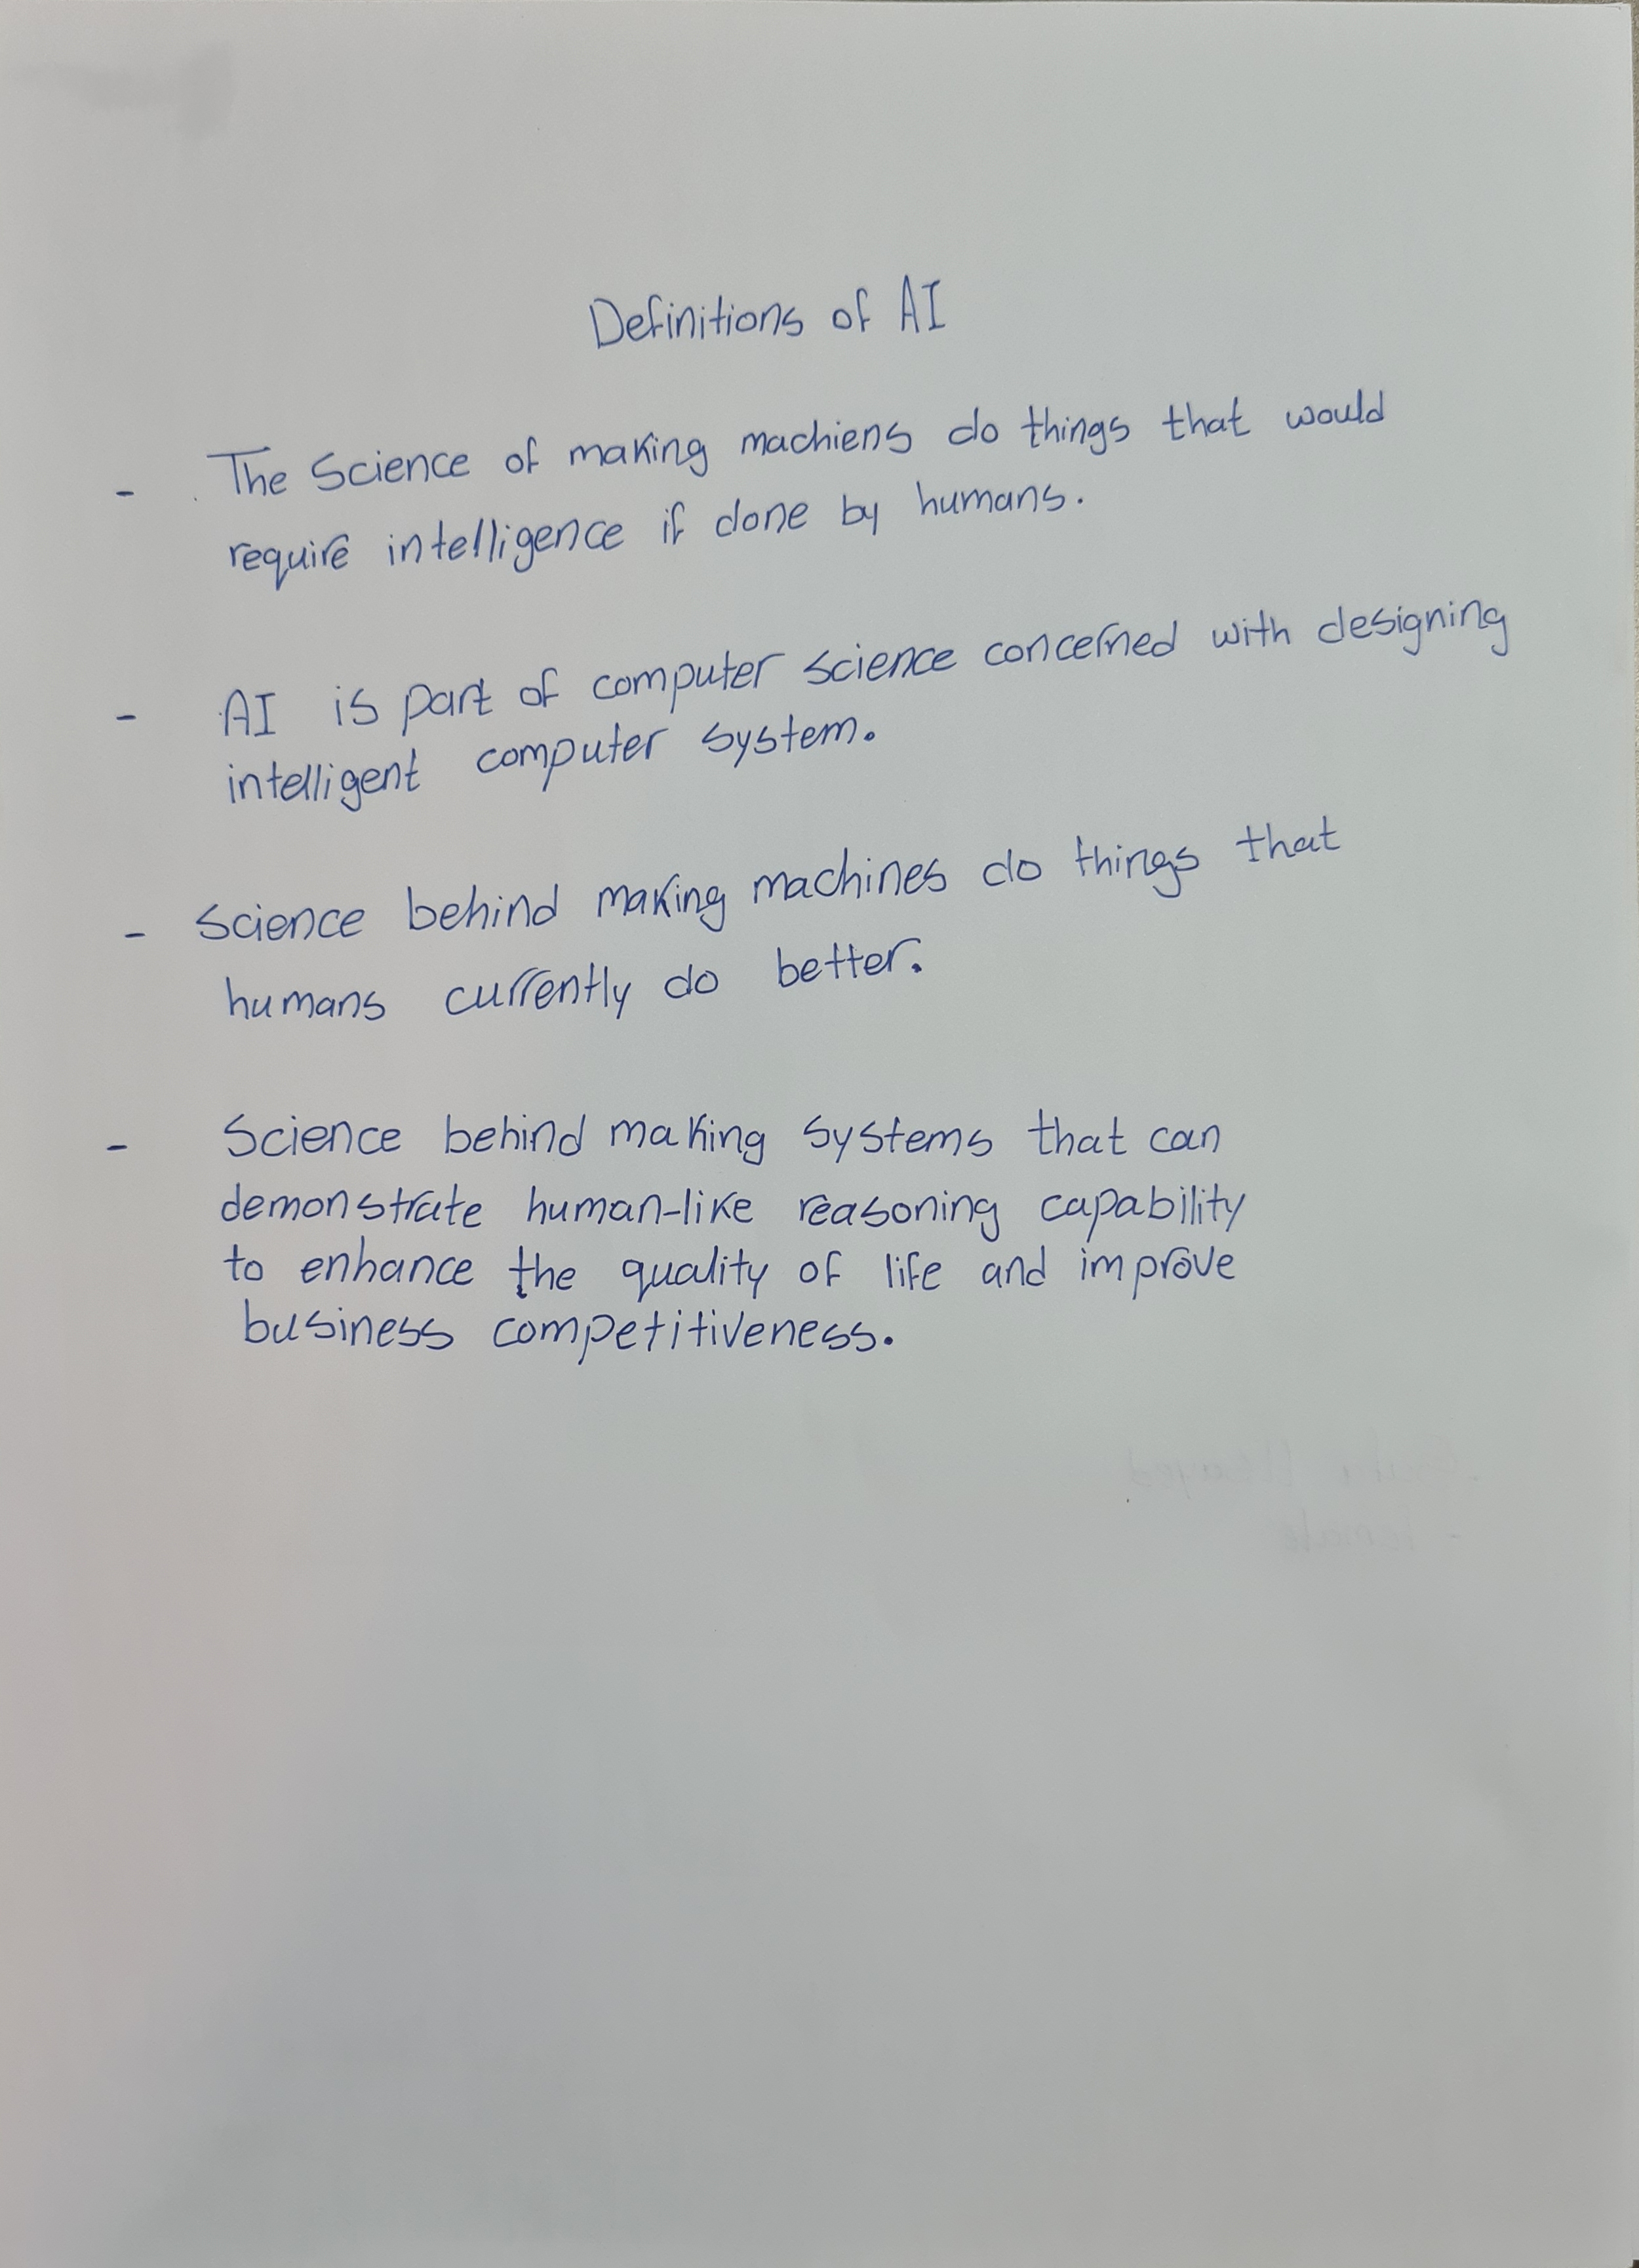 Definitions of AI
- The Science of making machiens do things that would
require intelligence if done by humans.
- AI is part of computer science concerned with designing
intelligent computer system.
- Science behind making machines do things that
humans currently do better.
- Science behind making systems that can
demonstrate human-like reasoning capability
to enhance the quality of life and improve
business competitiveness.